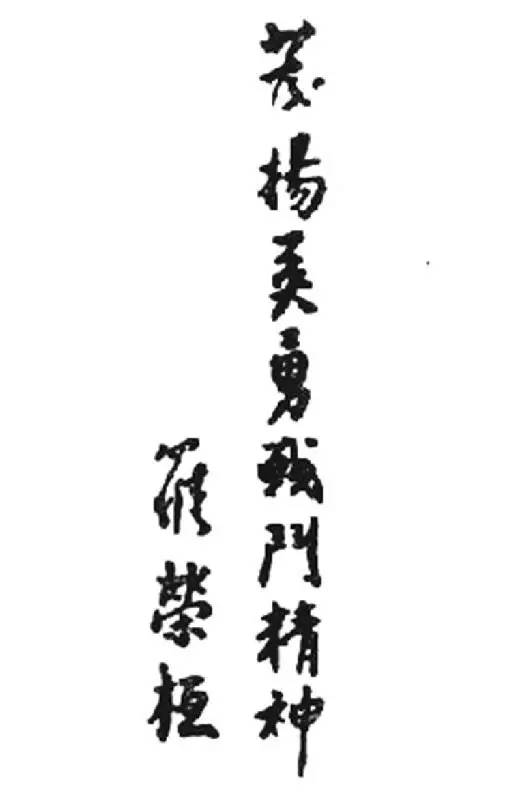 發揚英勇戰鬥精神
羅榮桓